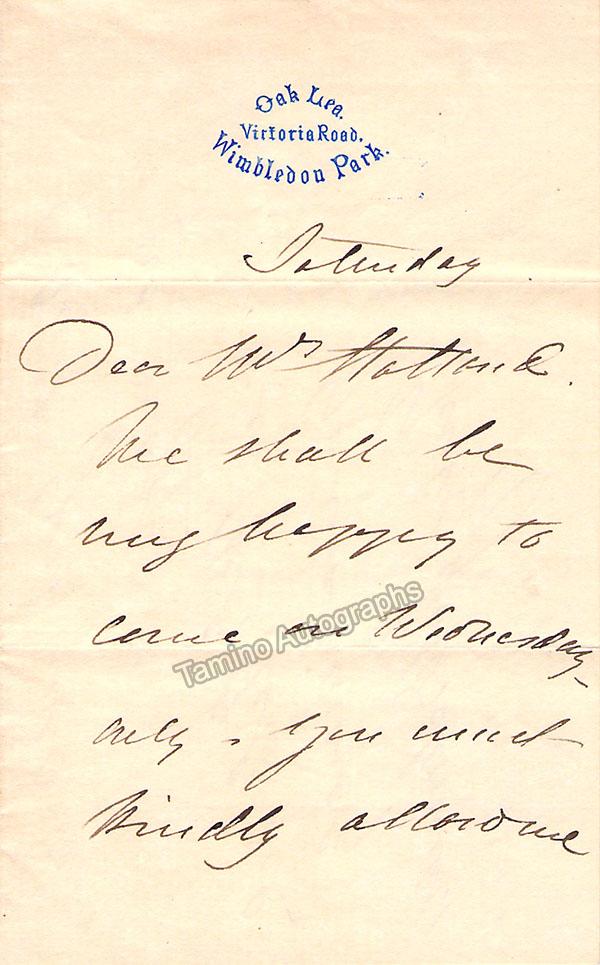 Oak Lea.
Victoria Road.
Wimbledon Park.
Saturday
Dear Mrs Holland.
We shall be
very happy to
come on Wednesday
only - you must
kindly allow me
Tamino Autographs